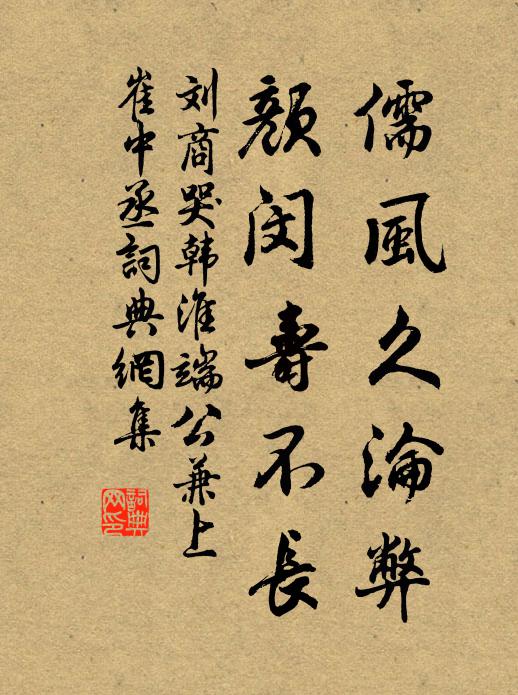 儒風久淪弊
顔闵壽不長
刘商哭韩淮端公兼上
崔中丞詞典網集
詞典
网印